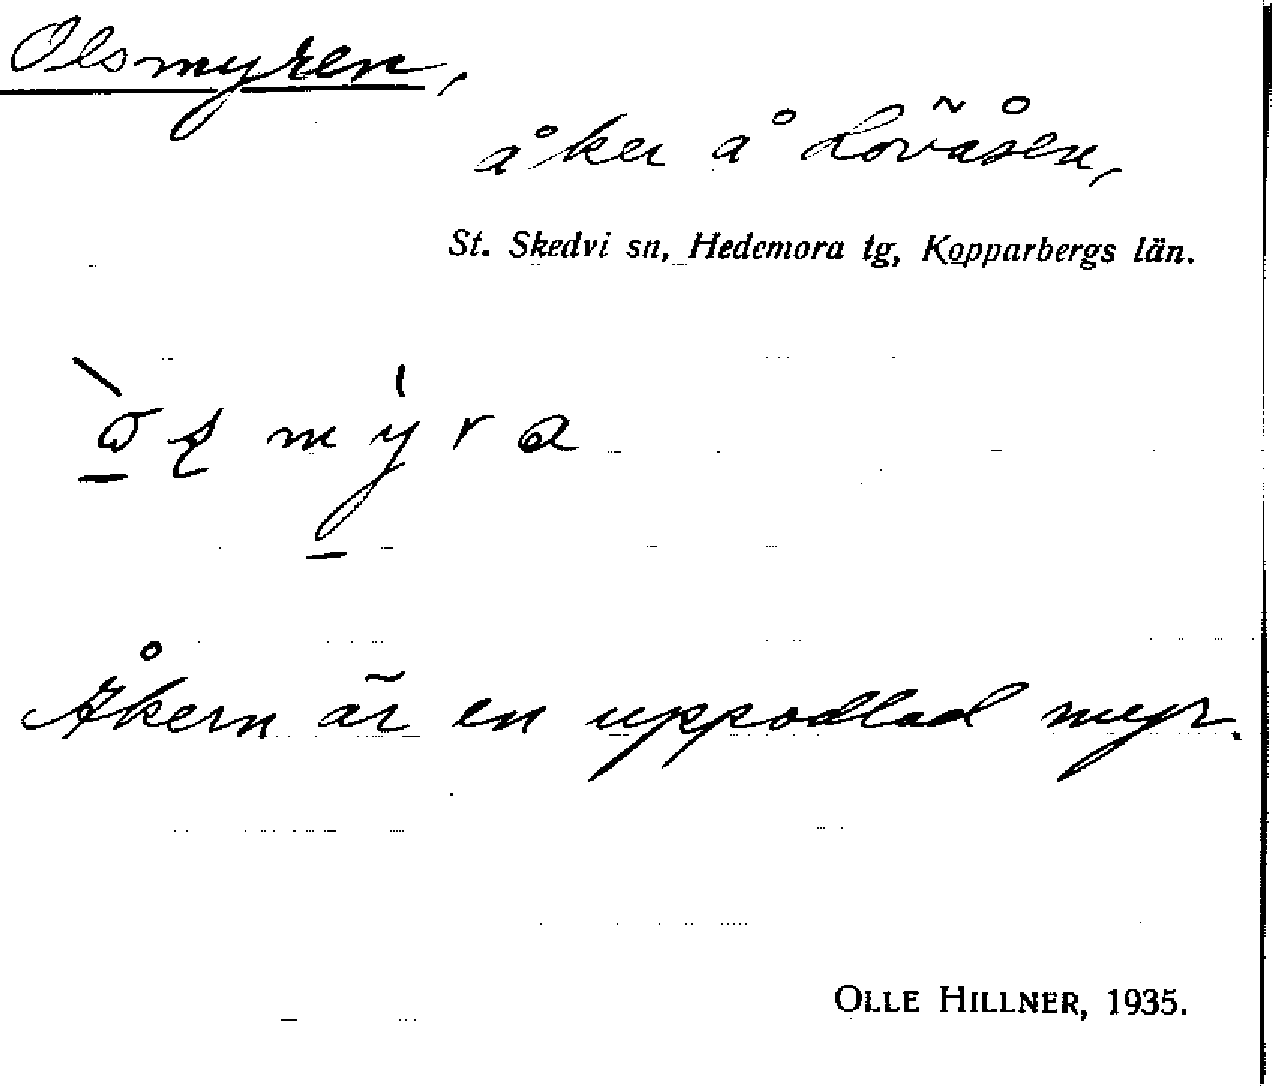 Olsmyren,
åker å Lövåsen,
St. Skedvi sn, Hedemora tg, Kopparbergs län.
Åkern är en uppodlad myr.
OLLE HILLNER, 1935.